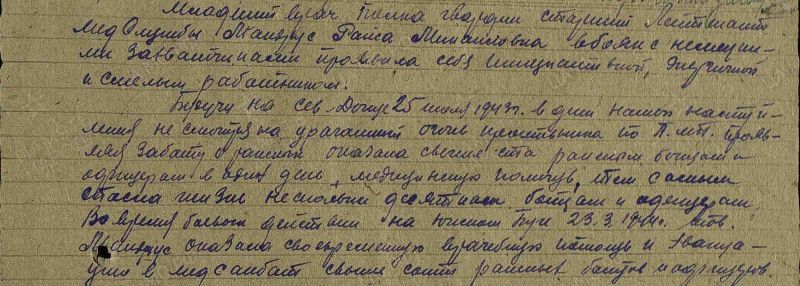 Младший врач полка гвардии старший Лейтенант
мед службы Мандрус Раиса Михайловна в боях с немецки-
ми захватчиками проявила себя инициативной, энергичной
и смелым работником.
Будучи на сев. Донце 25 июля 1943 г. в дни нашего наступ-
ления не смотря на ураганный огонь противника по П.М.П. прояв-
ляя заботу о раненых оказала свыше ста раненым бойцам и
офицерам в один день, медицинскую помощь, тем самым
спасла жизнь нескольким десяткам бойцам и офицерам.
Во время боевых действии на Южном Буге 23.3.1944 г. тов.
Мандрус оказала своевременную врачебную помощь и эвакуа-
цию в медсанбат свыше сотни раненых бойцов и офицеров.